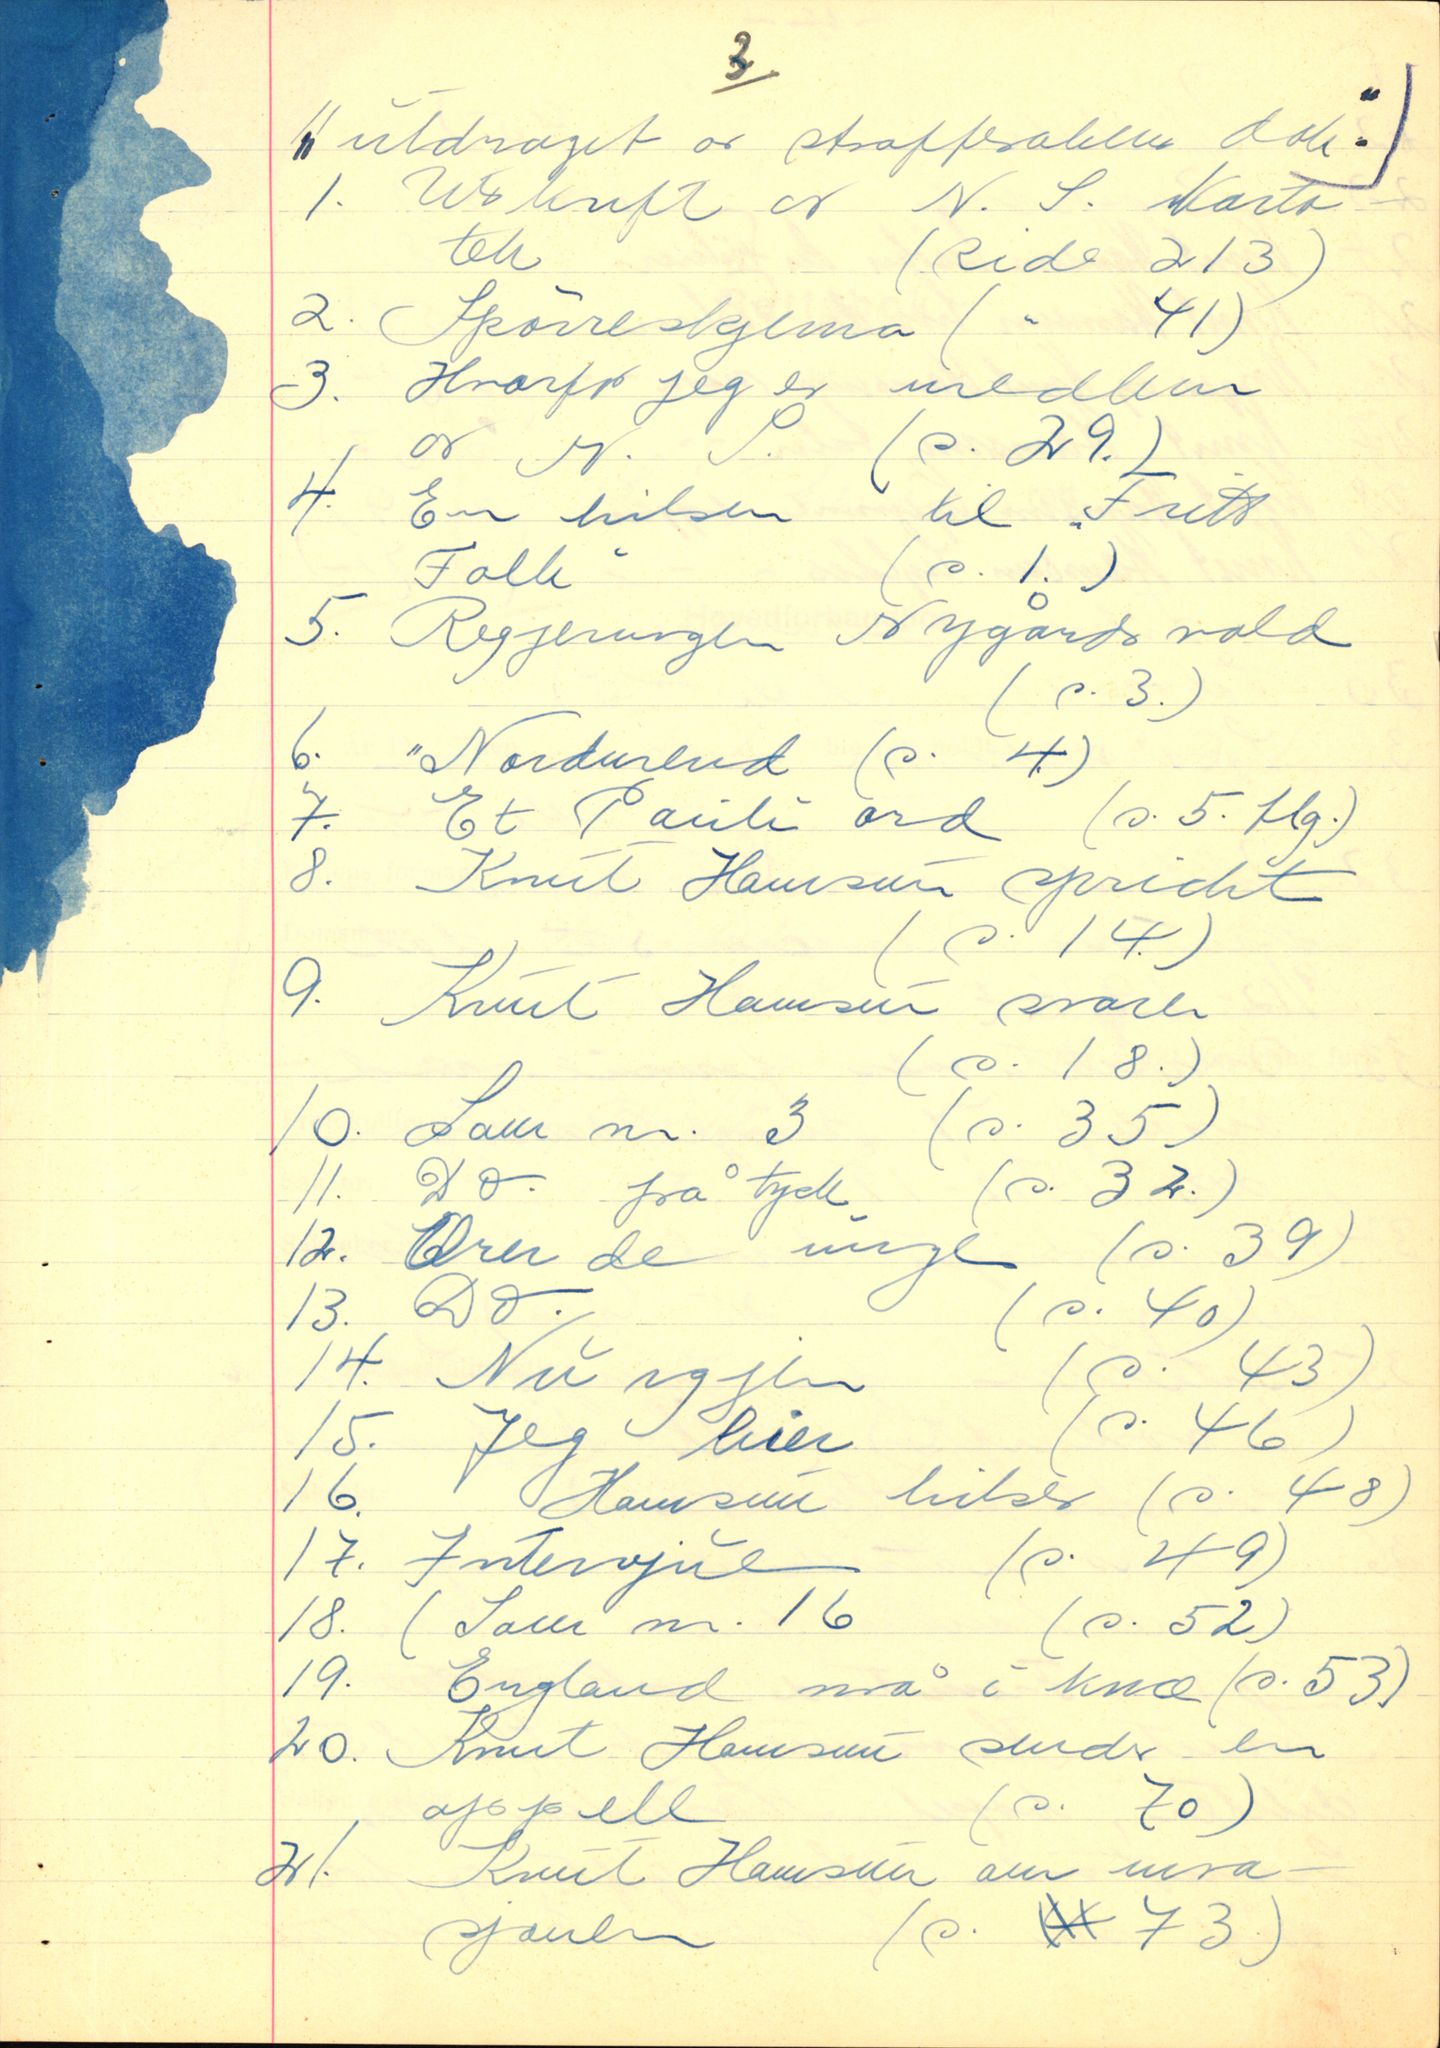 3
"utdraget av straffesakens dok."
1. Utskrift av N. S. Karto-
tek (side 213)
2. Spörreskjema ( " 41)
3. Hvorfor jeg er medlem
av N. S. (s. 29.)
4. En hilsen til "Fritt
Folk" (s. 1.)
5. Regjeringen Nygårdsvold
(s. 3.)
6. "Nordmend (s. 4)
7. Et Pauli ord (s. 5. flg.)
8. Knut Hamsun spricht
(s. 14.)
9. Knut Hamsun svarer
(s. 18.)
10. Som nr. 3 (s. 35)
11. Do. på tysk (s. 32.)
12. Ører de unge (s. 39)
13. Do. (s. 40)
14. Nu igjen (s. 43)
15. Jeg hier (s. 46)
16. Hamsun hilser (s. 48)
17. Intervjue (s. 49)
18. (Som nr. 16 (s. 52)
19. England må i knæ (s. 53)
20. Knut Hamsun sender en
appell (s. 70)
21. Knut Hamsun om inva-
sjonen (s. 73.)